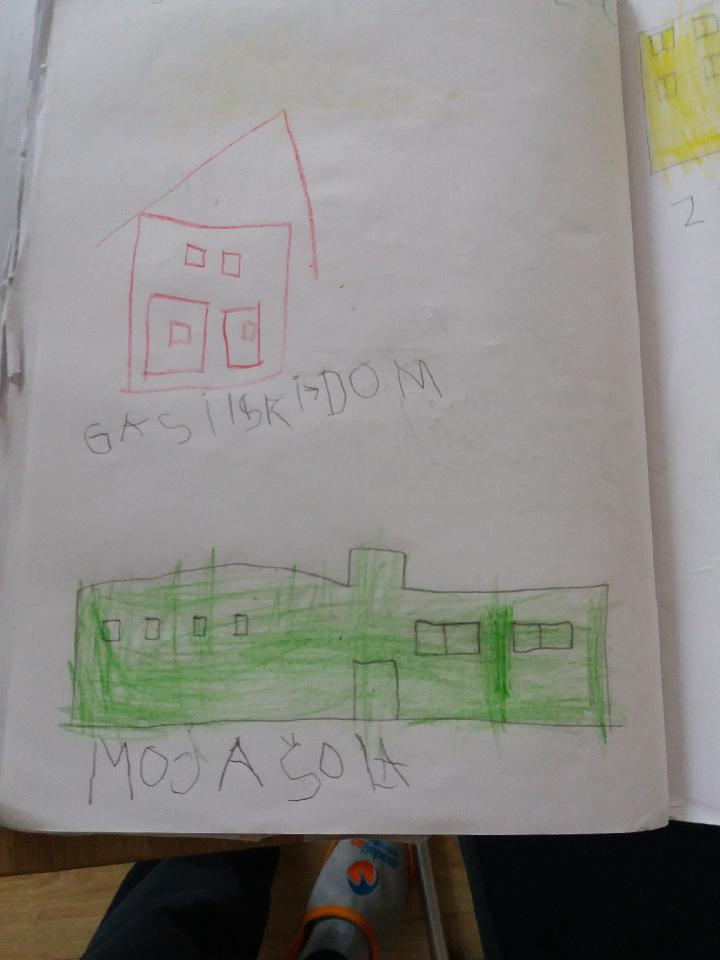 GASILSKI DOM
MOJA ŠOLA